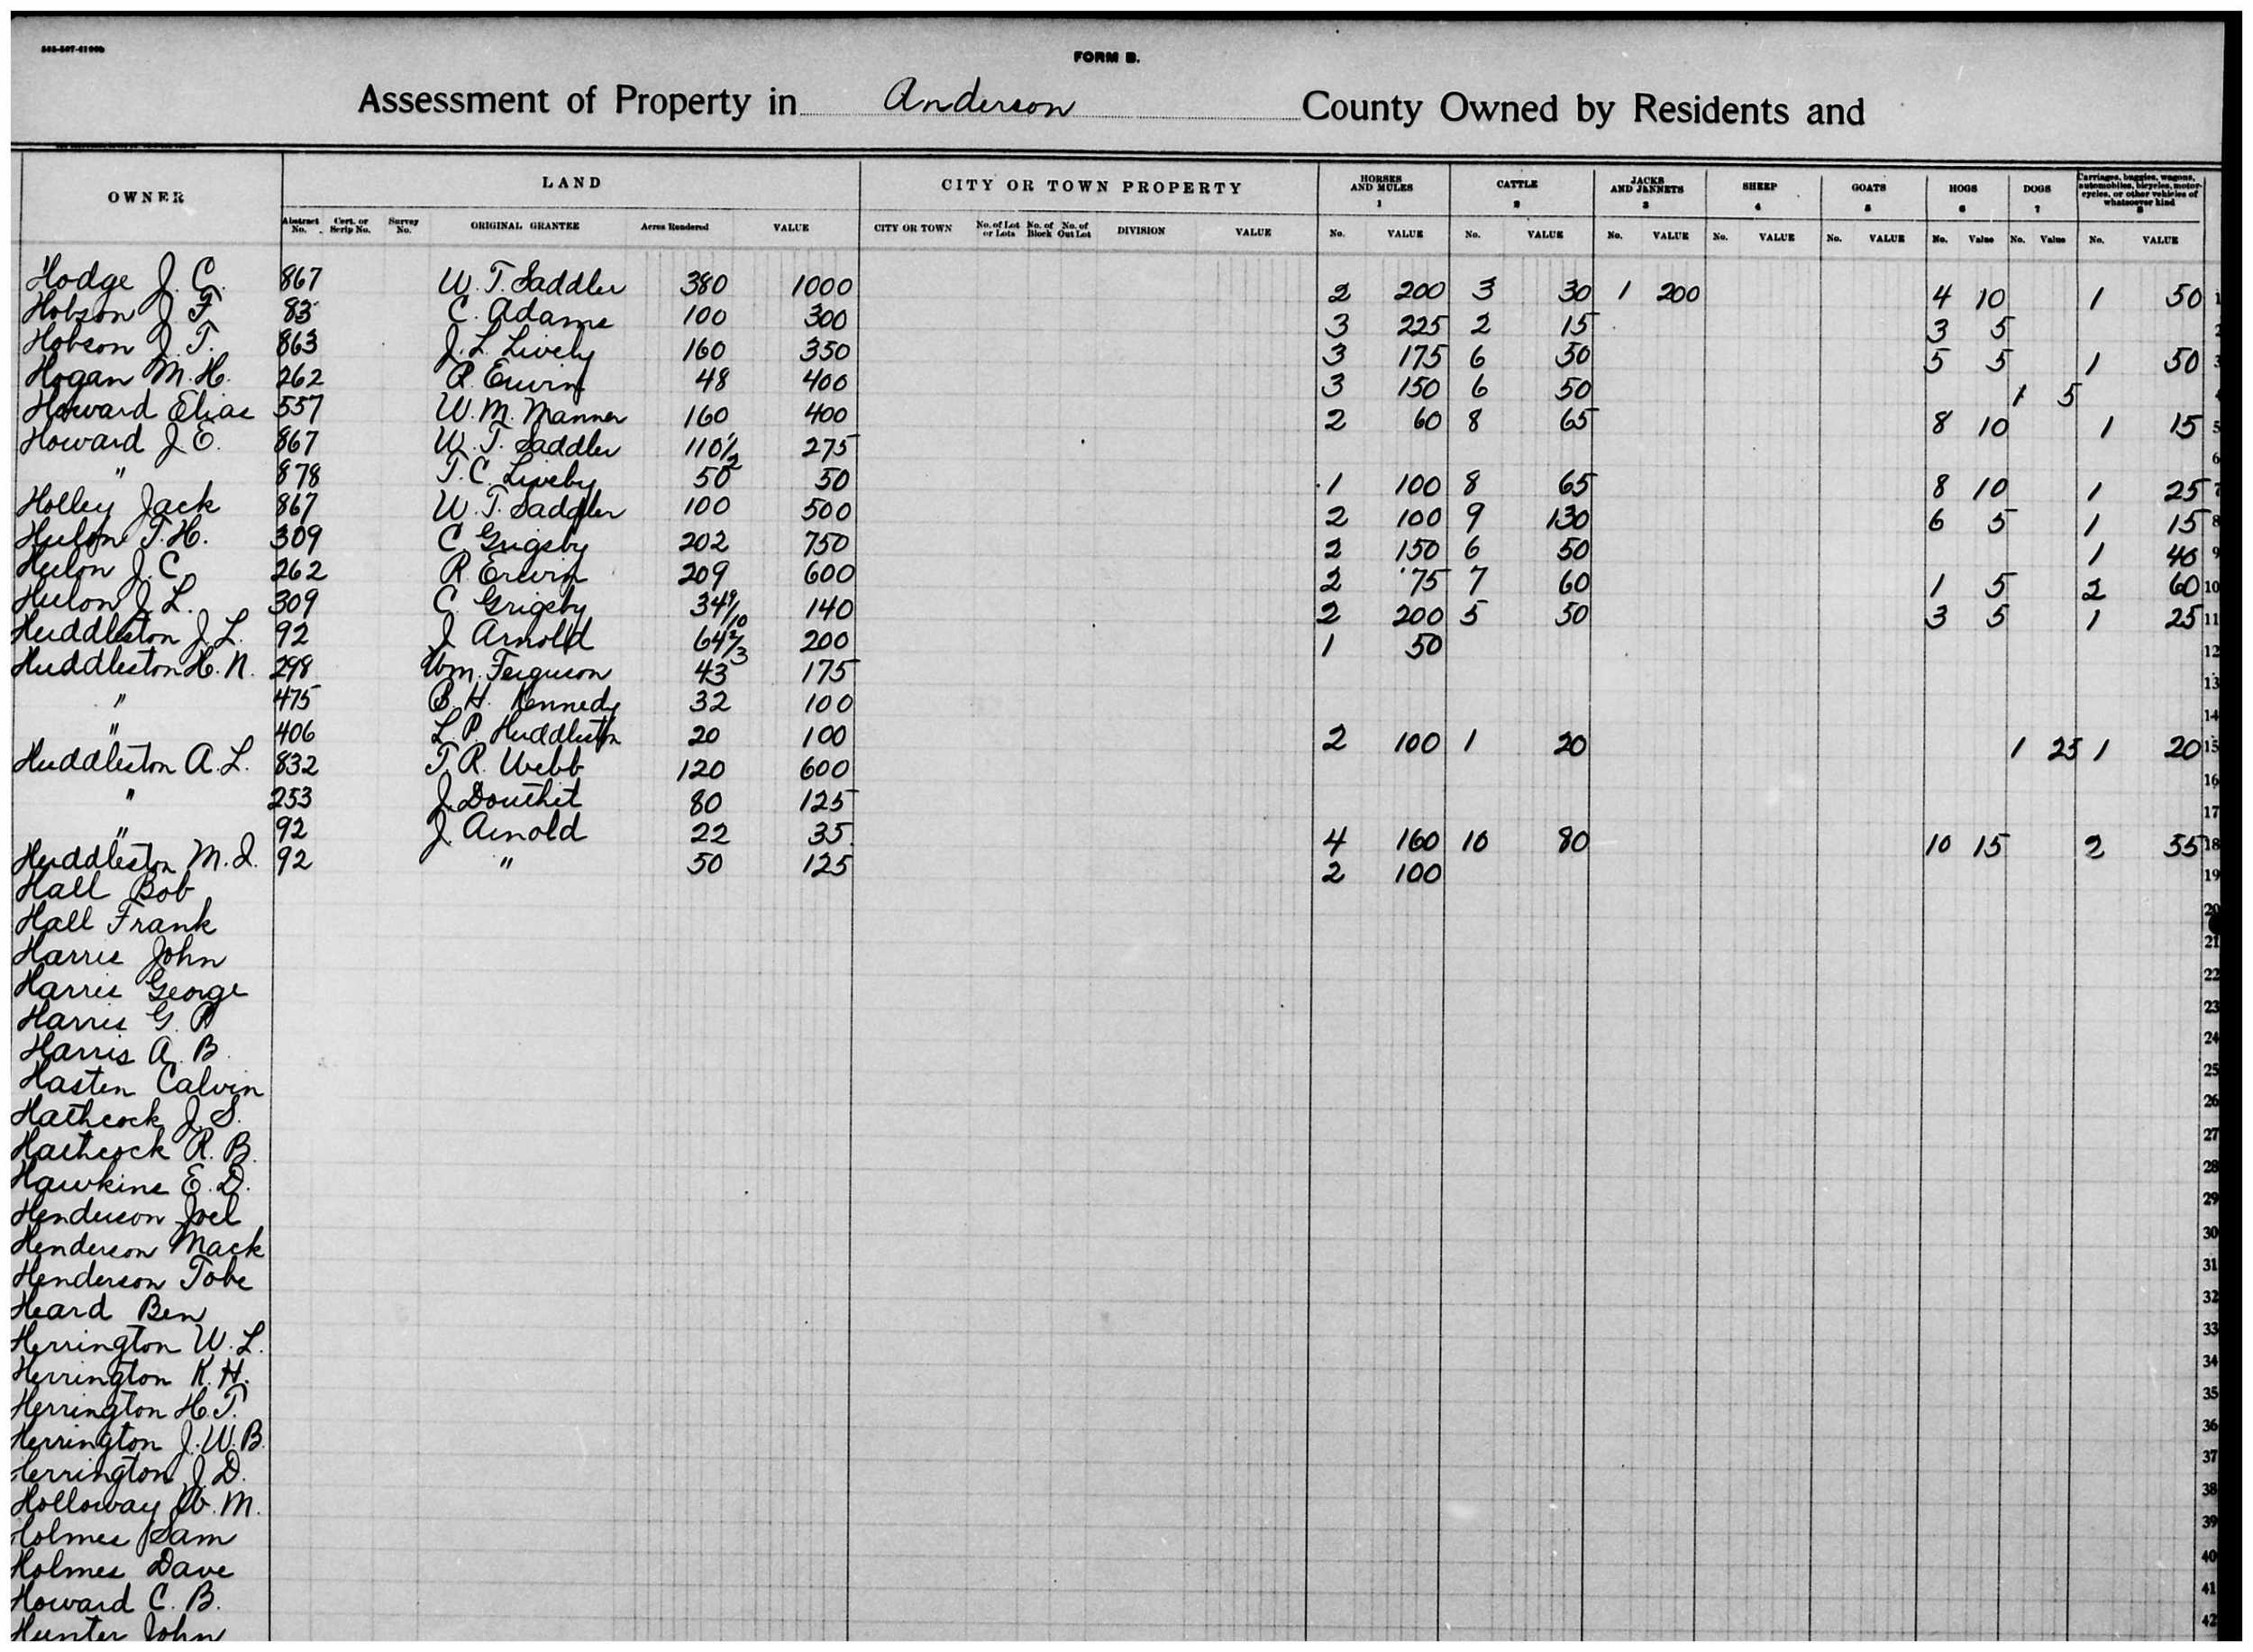 FORM B.
Assessment of Property in Anderson County Owned by Residents and
OWNER LAND CITY OR TOWN PROPERTY HORSES AND MULES 1 CATTLE 2 JACKS AND JENNETS 3 SHEEP 4 GOATS 5 HOGS 6 DOGS 7 Carriages, buggies, wagons, automobiles, bicycles, motor-cycles, or other vehicles of whatsoever kind 8
Abstract No. Cert. or Scrip No. Survey No. ORIGINAL GRANTEE Acres Rendered VALUE CITY OR TOWN No. of Lot or Lots No. of Block No. of Out Lot DIVISION VALUE No. VALUE No. VALUE No. VALUE No. VALUE No. VALUE No. Value No. Value No. VALUE
Hodge J. C. 867 W. T. Saddler 380 1000 2 200 3 30 1 200 4 10 1 50 1
Hobson J F 83 C. Adams 100 300 3 225 2 15 3 5 2
Hobson J. T. 863 J. L. Lively 160 350 3 175 6 50 5 5 1 50 3
Hogan M. H. 262 R. Erwin 48 400 3 150 6 50 1 5 4
Howard Elias 557 W. M. Manner 160 400 2 60 8 65 8 10 1 15 5
Howard J. E. 867 W. T. Saddler 110 1/2 275 6
" 878 T. C. Liveby 50 50 1 100 8 65 8 10 1 25 7
Holley Jack 867 W. T. Saddler 100 500 2 100 9 130 6 5 1 15 8
Hulon T. H. 309 C. Grigsby 202 750 2 150 6 50 1 40 9
Hulon J. C. 262 R. Erwin 209 600 2 75 7 60 1 5 2 60 10
Hulon J. L. 309 C. Grigsby 34 9/10 140 2 200 5 50 3 5 1 25 11
Huddleston J. L. 92 J. Arnold 64 2/3 200 1 50 12
Huddleston H. N. 298 Wm. Ferguson 43 175 13
" 475 B. H. Kennedy 32 100 14
" 406 L. P. Huddleston 20 100 2 100 1 20 1 25 1 20 15
Huddleston A. L. 832 T. R. Webb 120 600 16
" 253 J. Douthit 80 125 17
" 92 J. Arnold 22 35 4 160 10 80 10 15 2 55 18
Huddleston M. I. 92 " 50 125 2 100 19
Hall Bob 20
Hall Frank 21
Harris John 22
Harris George 23
Harris G. P. 24
Harris A. B. 25
Hasten Calvin 26
Hathcock J. S. 27
Hathcock R. B. 28
Hawkins E. D. 29
Henderson Joel 30
Henderson Mack 31
Henderson Tobe 32
Heard Ben 33
Herrington W. L. 34
Herrington K. H. 35
Herrington H. T. 36
Herrington J. W. B. 37
Herrington J. D. 38
Holloway W. M. 39
Holmes Sam 40
Holmes Dave 41
Howard C. B. 42
Hunter John